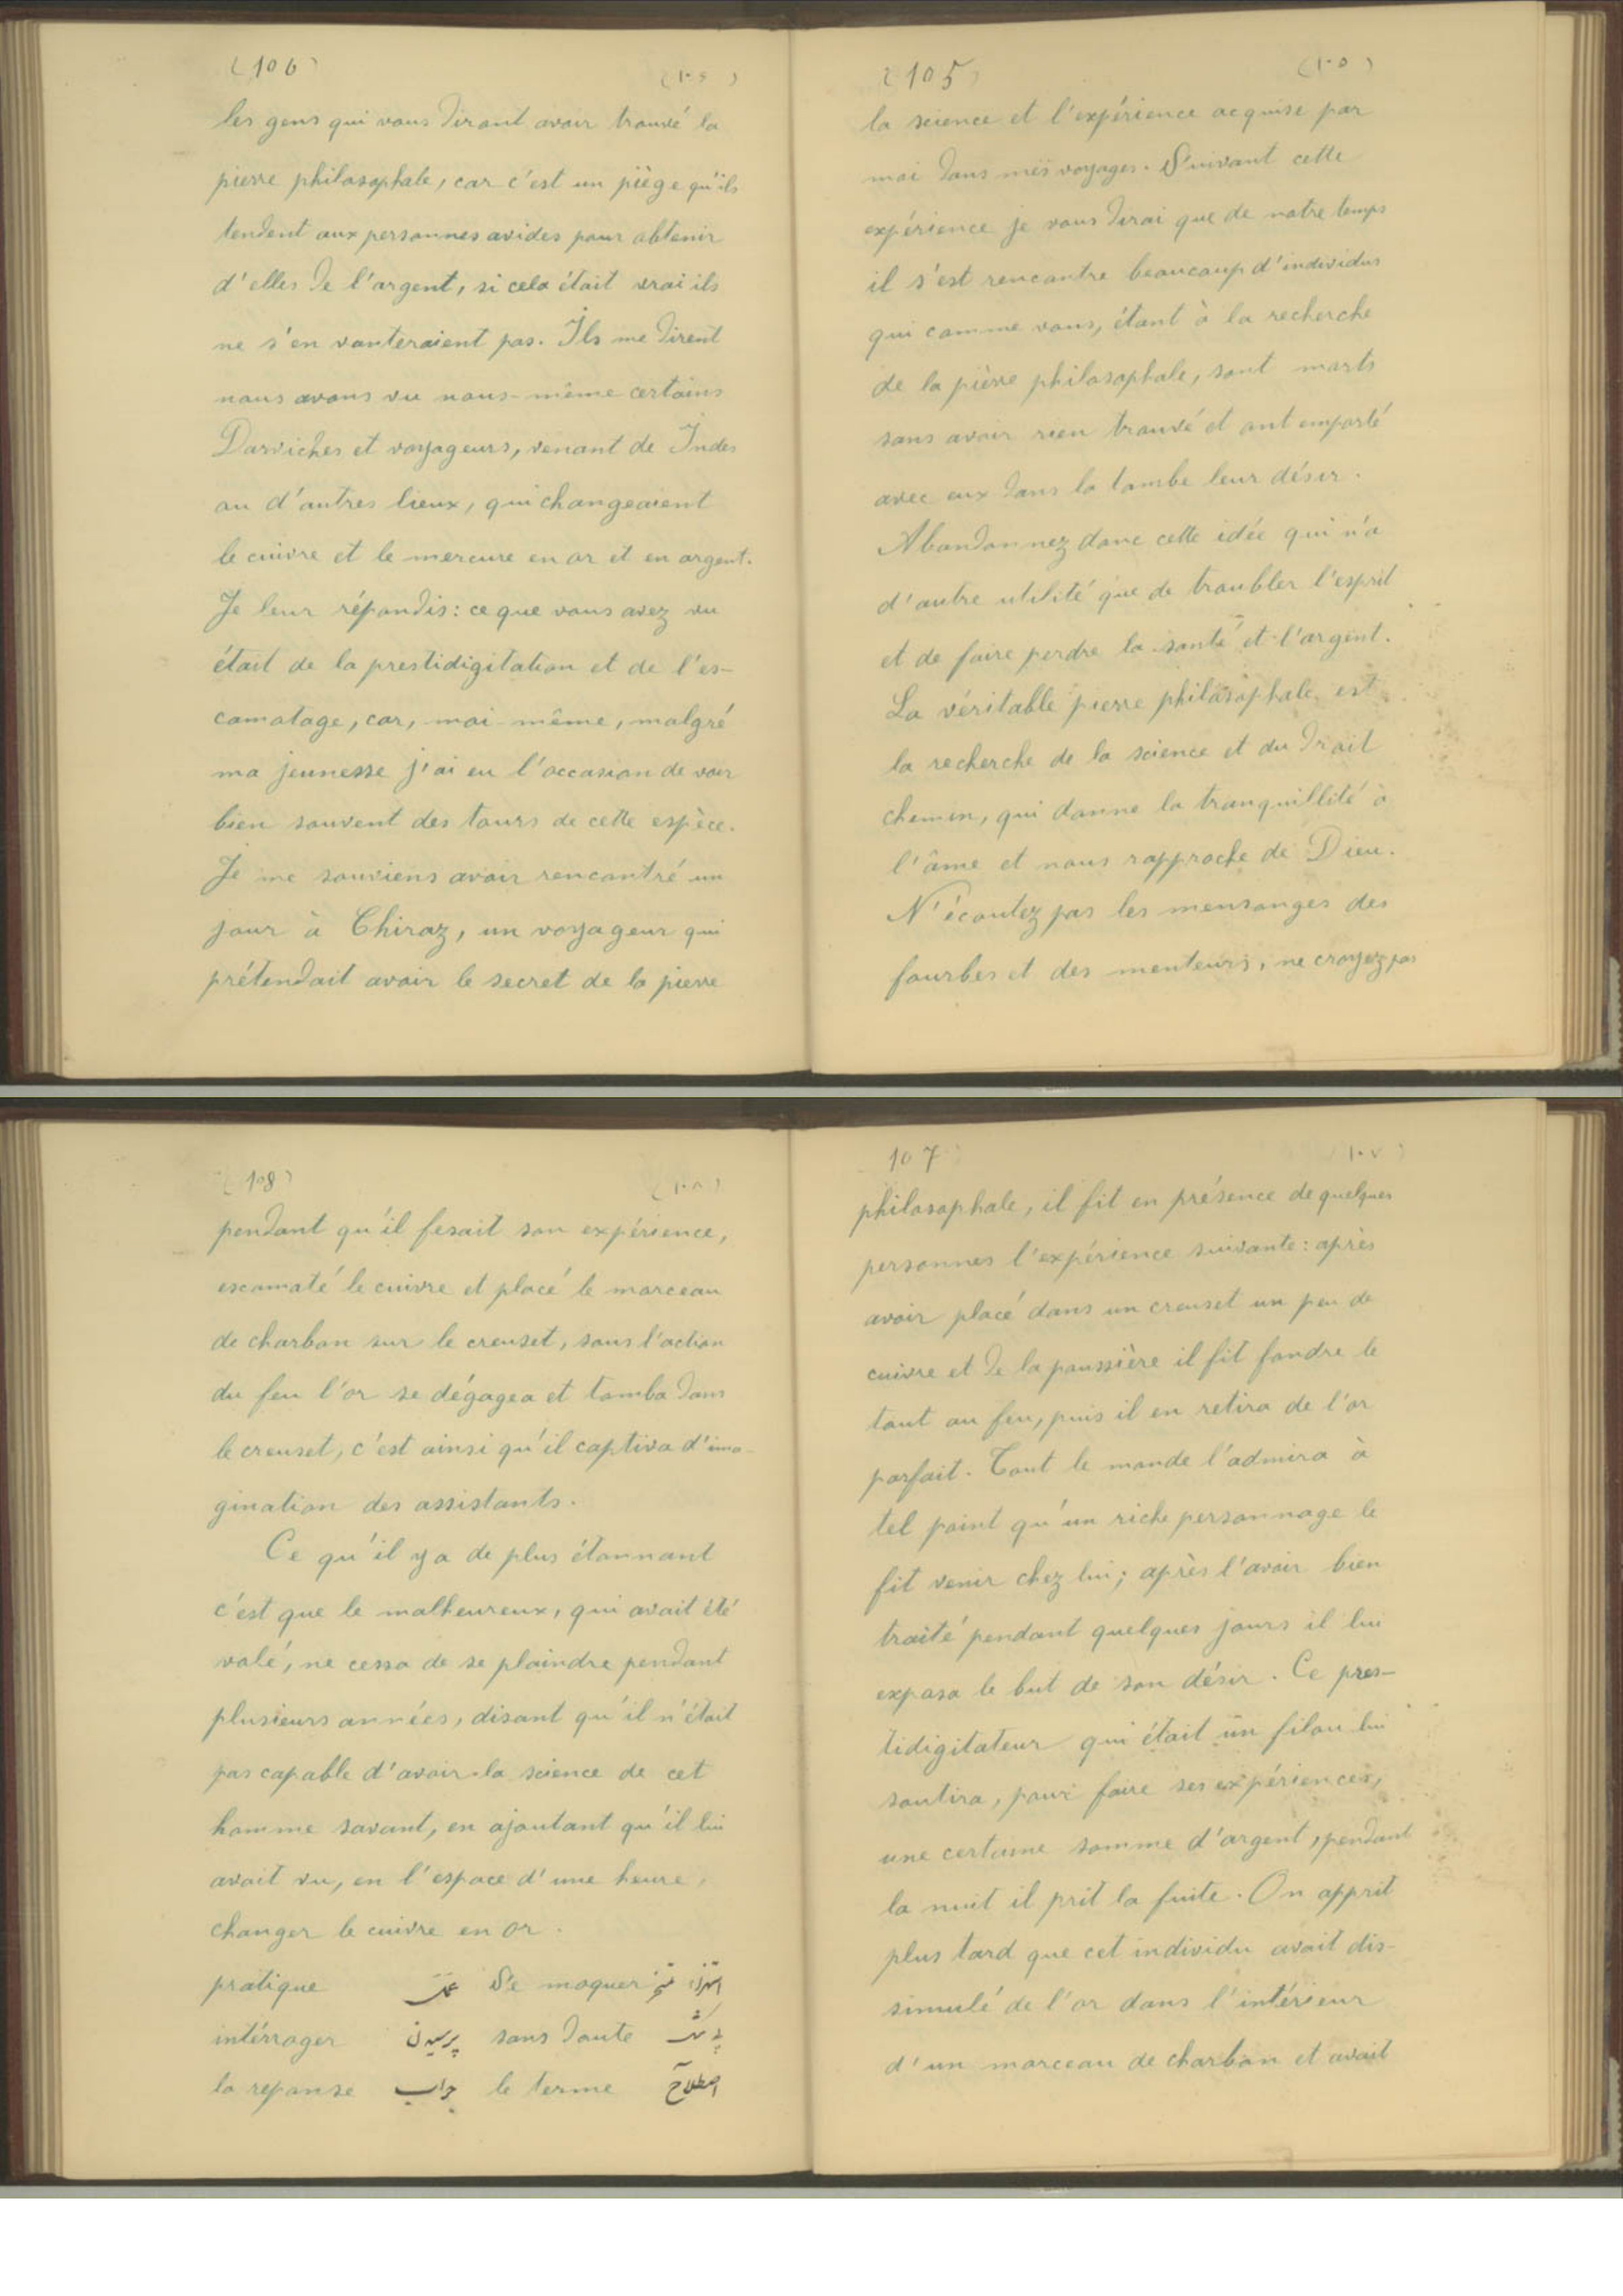 (105) (١٠٥)
la science et l'expérience acquise par
moi dans mes voyages. Suivant cette
expérience je vous dirai que de notre temps
il s'est rencontre beaucoup d'individus
qui comme vous, étant à la recherche
de la pièrre philosophale, sont morts
sans avoir rien trouvé et ont emporté
avec eux dans la tombe leur désir.
Abandonnez donc cette idée qui n'a
d'autre utilité que de troubler l'esprit
et de faire perdre la santé et l'argent.
La véritable pierre philosophale est
la recherche de la science et du droit
chemin, qui donne la tranquillité à
l'âme et nous rapproche de Dieu.
N'écoutez pas les mensonges des
fourbes et des menteurs, ne croyez pas
(106) (١٠٦)
les gens qui vous diront avoir trouvé la
pierre philosophale, car c'est un piège qu'ils
tendent aux personnes avides pour obtenir
d'elles de l'argent, si cela était vrai ils
ne s'en vanteraient pas. Ils me dirent
nous avons vu nous-même certains
Darviches et voyageurs, venant de Indes
ou d'autres lieux, qui changeaient
le cuivre et le mercure en or et en argent.
Je leur répondis: ce que vous avez vu
était de la prestidigitation et de l'es-
camotage, car, moi-même, malgré
ma jeunesse j'ai eu l'occasion de voir
bien souvent des tours de cette espèce.
Je me souviens avoir rencontré un
jour à Chiraz, un voyageur qui
prétendait avoir le secret de la pierre
107 (١٠٧)
philosophale, il fit en présence de quelques
personnes l'expérience suivante: après
avoir placé dans un creuset un peu de
cuivre et de la poussière il fit fondre le
tout au feu, puis il en retira de l'or
parfait. Tout le monde l'admira à
tel point qu'un riche personnage le
fit venir chez lui; après l'avoir bien
traité pendant quelques jours il lui
exposa le but de son désir. Ce pres-
tidigitateur qui était un filou lui
soutira, pour faire ses expériences,
une certaine somme d'argent, pendant
la nuit il prit la fuite. On apprit
plus tard que cet individu avait dis-
simulé de l'or dans l'intérieur
d'un morceau de charbon et avait
(108) (١٠٨)
pendant qu'il fesait son expérience,
escamoté le cuivre et placé le morceau
de charbon sur le creuset, sous l'action
du feu l'or se dégagea et tomba dans
le creuset, c'est ainsi qu'il captiva d'ima-
gination des assistants.
Ce qu'il y a de plus étonnant
c'est que le malheureux, qui avait été
volé, ne cessa de se plaindre pendant
plusieurs années, disant qu'il n'était
pas capable d'avoir la science de cet
homme savant, en ajoutant qu'il lui
avait vu, en l'espace d'une heure,
changer le cuivre en or.
pratique Se moquer
intérroger پرسیدن sans doute
la reponse جواب le terme اصطلاح